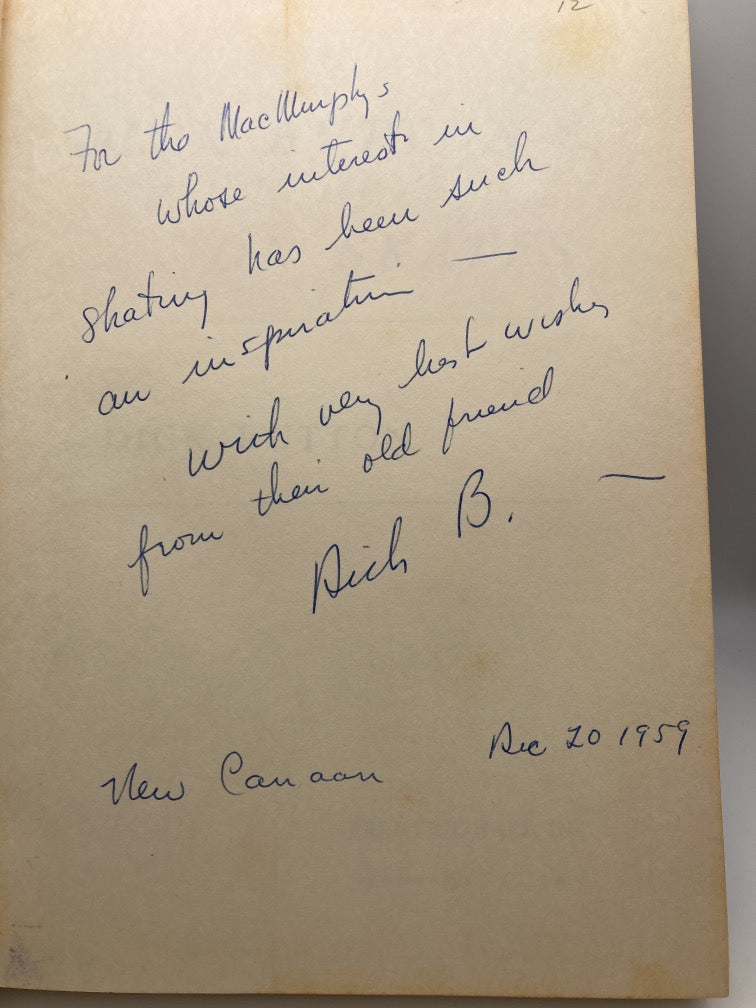 12
For the MacMurphys
whose interest in
skating has been such
an inspiration —
with very best wishes
from their old friend
Dick B. —
New Canaan Dec 20 1959